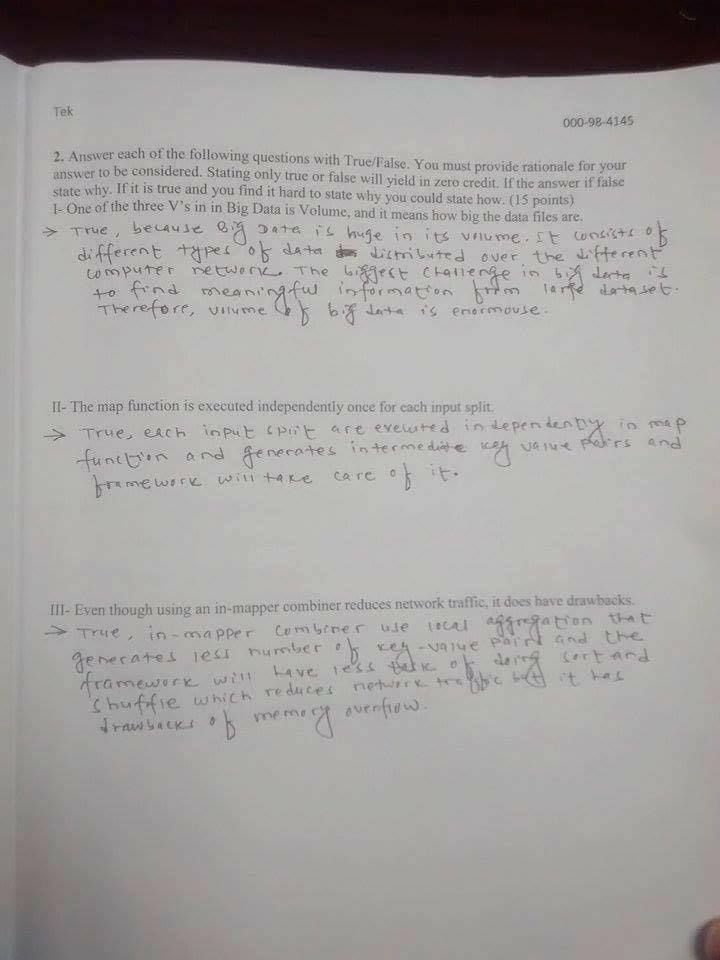 Tek
000-98-4145
2. Answer each of the following questions with True/False. You must provide rationale for your
answer to be considered. Stating only true or false will yield in zero credit. If the answer if false
state why. If it is true and you find it hard to state why you could state how. (15 points)
I- One of the three V's in in Big Data is Volume, and it means how big the data files are.
→ True, because Big Data is huge in its volume. It consists of
different types of data distributed over the different
computer network. The biggest challenge in big data is
to find meaningful information from large dataset.
Therefore, volume of big data is enormouse.
II- The map function is executed independently once for each input split.
→ True, each input split are executed independently in map
function and generates intermediate key value pairs and
framework will take care of it.
III- Even though using an in-mapper combiner reduces network traffic, it does have drawbacks.
→ True, in-mapper combiner use local aggregation that
generates less number of key-value pairs and the
framework will have less task of doing sort and
shuffle which reduces network traffic but it has
drawbacks of memory overflow.